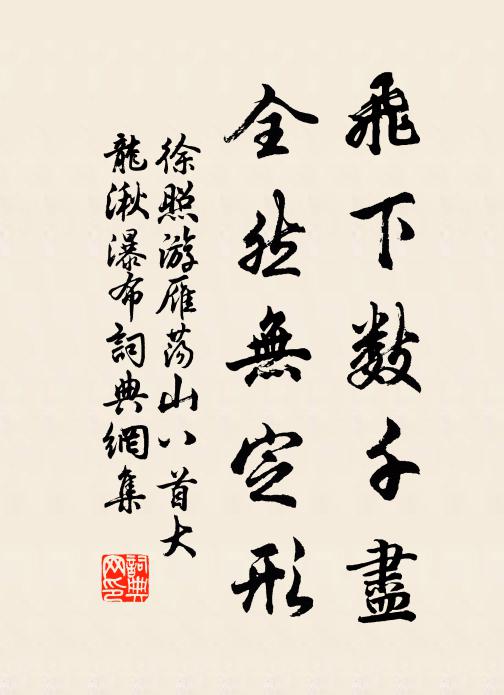 飛下数千盡
全然無定形
徐照游雁荡山八首大
龍湫瀑布詞典網集
詞典网印